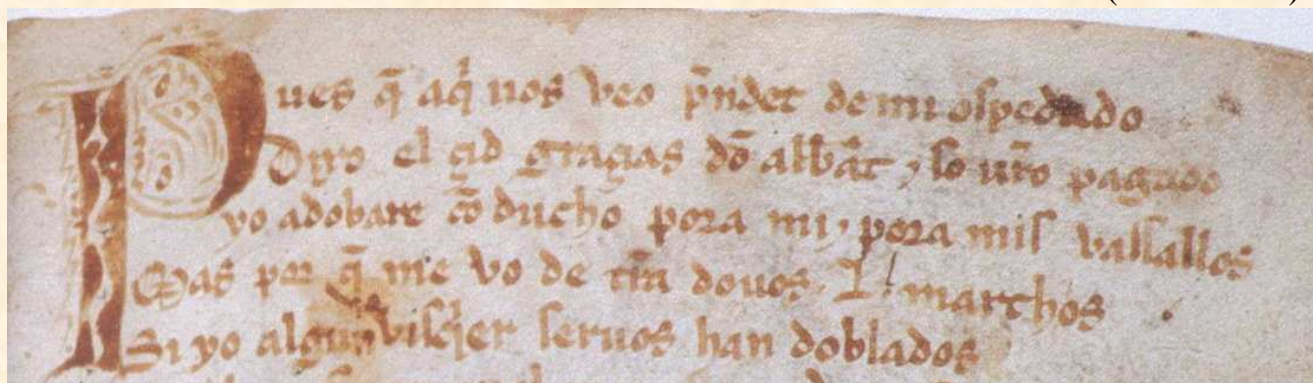 Pues q̄ aq́ uos veo p̄ndet de mi ospedado
Dixo el çid graçias dō abbāt ⁊ so ur̄o pagado
yo adobare cō ducho pora mi ⁊ pora mis vassallos
Mas por q̄ me vo de tr̄ra douos .L. marchos
Si yo algun visq́ier seruos han doblados